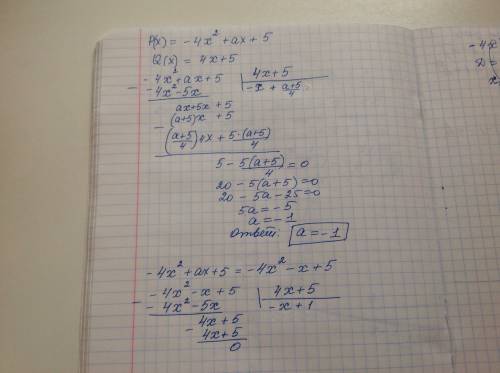 P(x) = -4x² + ax + 5
Q(x) = 4x+5
-4x²+ax+5 | 4x+5
-4x²-5x | -x + (a+5)/4
ax+5x +5
(a+5)x +5
((a+5)/4)4x + 5·(a+5)/4
5 - 5(a+5)/4 = 0
20 - 5(a+5)=0
20 - 5a - 25=0
5a = -5
a = -1
Ответ: a = -1
-4x²+ax+5 = -4x²-x+5
-4x²-x+5 | 4x+5
-4x²-5x | -x+1
4x+5
4x+5
0